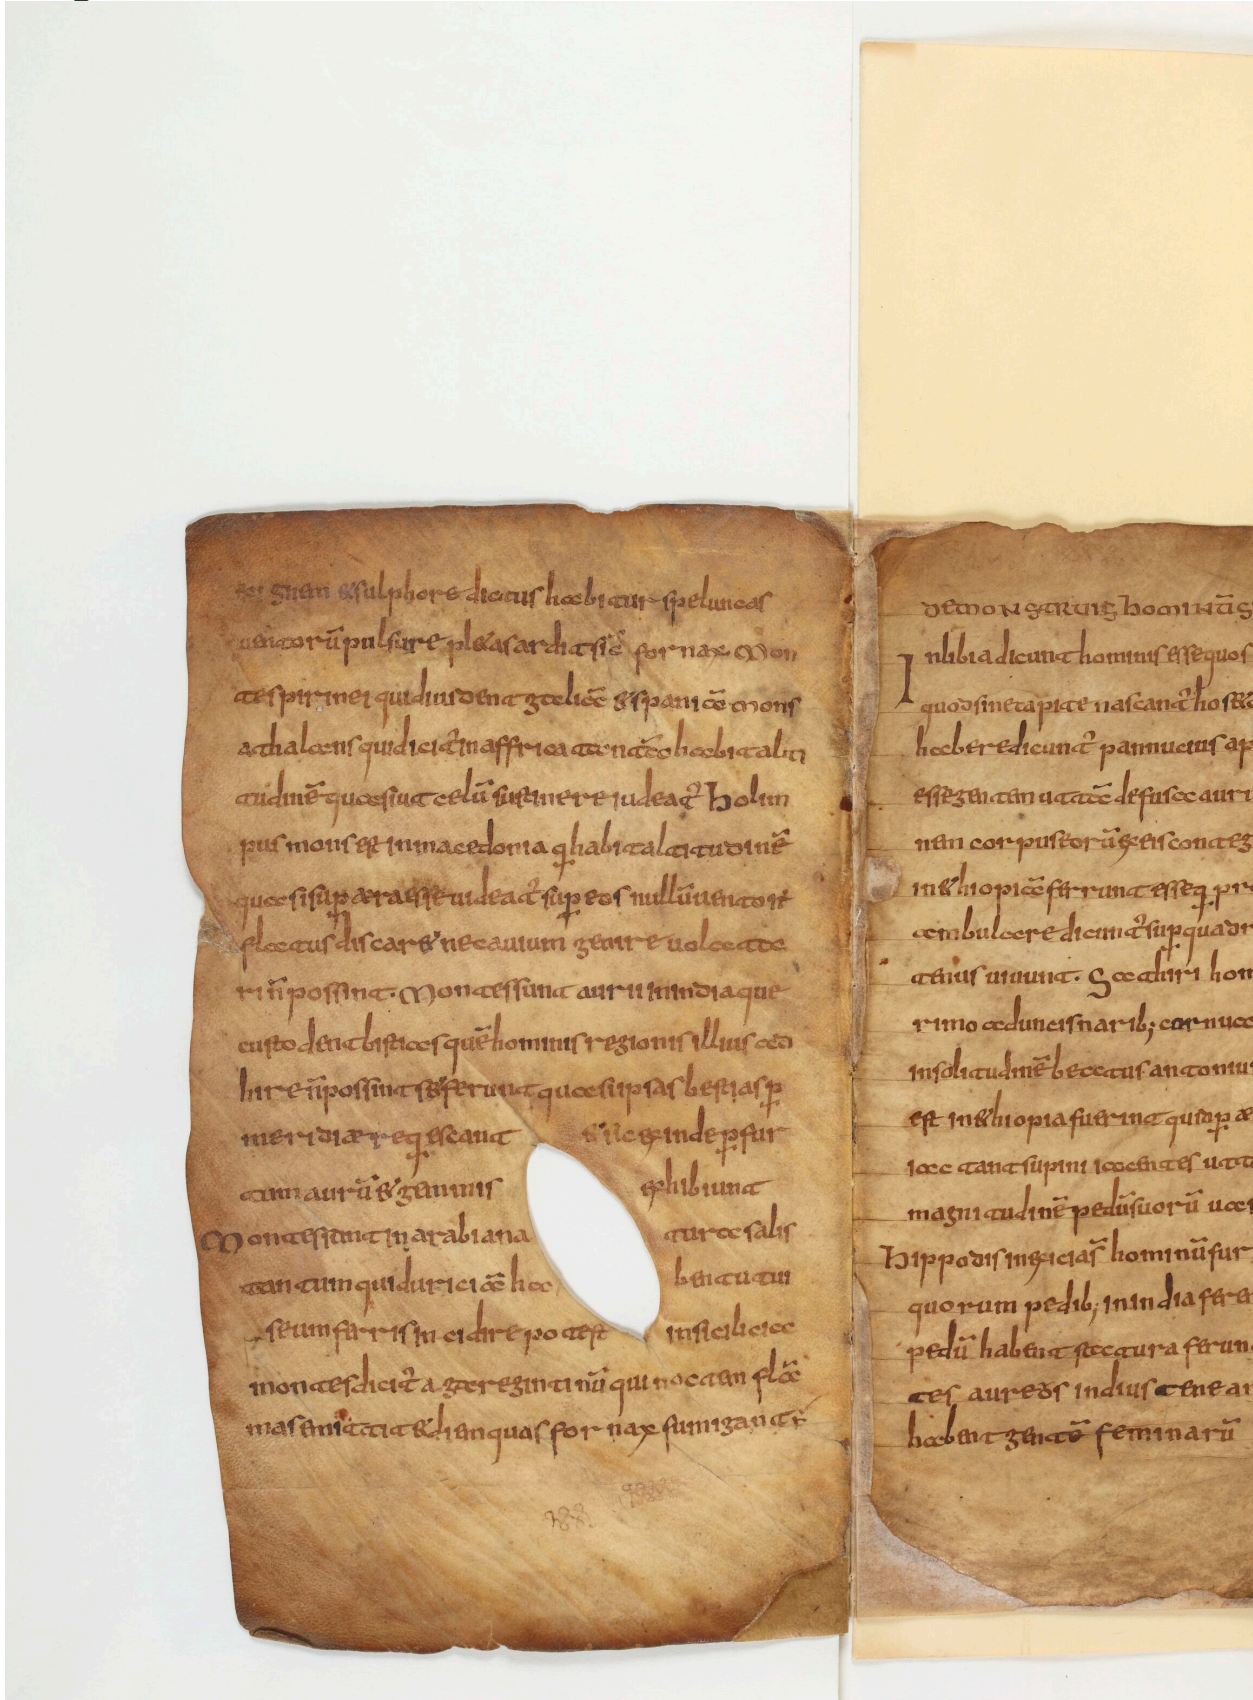 ignem &sulphore dictus habitur speluncas
uentorū pulsure pl&as ardit sic̄ fornax Mon
tes pirinei qui diuident galicā &spanicā mons
athalans qui dicit̄ in affrica tantā habit alti
tudinē quasi ut celū sustinere uideat̄ holim
pus mons est in macedonia ꝗ habit altitudinē
quasi suꝑ æra esse uideat̄ suꝑ eos nullū uentor̄
flatus discare& nec auium genire uolata
ri n̄ possint. Montes sunt aurii in india que
custodent bistias quē hominis regionis illius ad
hire n̄ possint s& ferunt quasi ipsas bestias ꝑ
meridiæ reꝗescant & sic exinde ꝑfur
tum aurū & gemmis exhibiunt
Montes sunt in arabia na turæ salis
tantum qui duriciā ha bent ut ui
seum ferris in cidire potest in sicilicia
montes dicit̄ a gregintinū qui noctem flā
mas emittit & diem quas fornax fumigant̄
DEMONSTRUIS hominūS
Inlibia dicunt hominis esse quos
quod sine capite nascant̄ hos&
habere dicunt̄ pannucius ap
esse gentem ut tā de fusca auri
nem corpus eorū ex eis conteg
in &hiopiā ferrunt esse ꝗ pro
ambulare dicunt̄ suꝑ quadr
tenius uiuunt. Satiuri hom
rimo aduncis narib; cornua
in solitudinē beatus antonius
est in &hiopia fuerint quidꝑ æ
iaca tant supini iacentes utt
magnitudinē pedū suorū uası
hippodis inscicias hominū fur
quorum pedib; in india feren
pedū habent statura ferun
tes aureos indius tene an
habent gentē feminarū